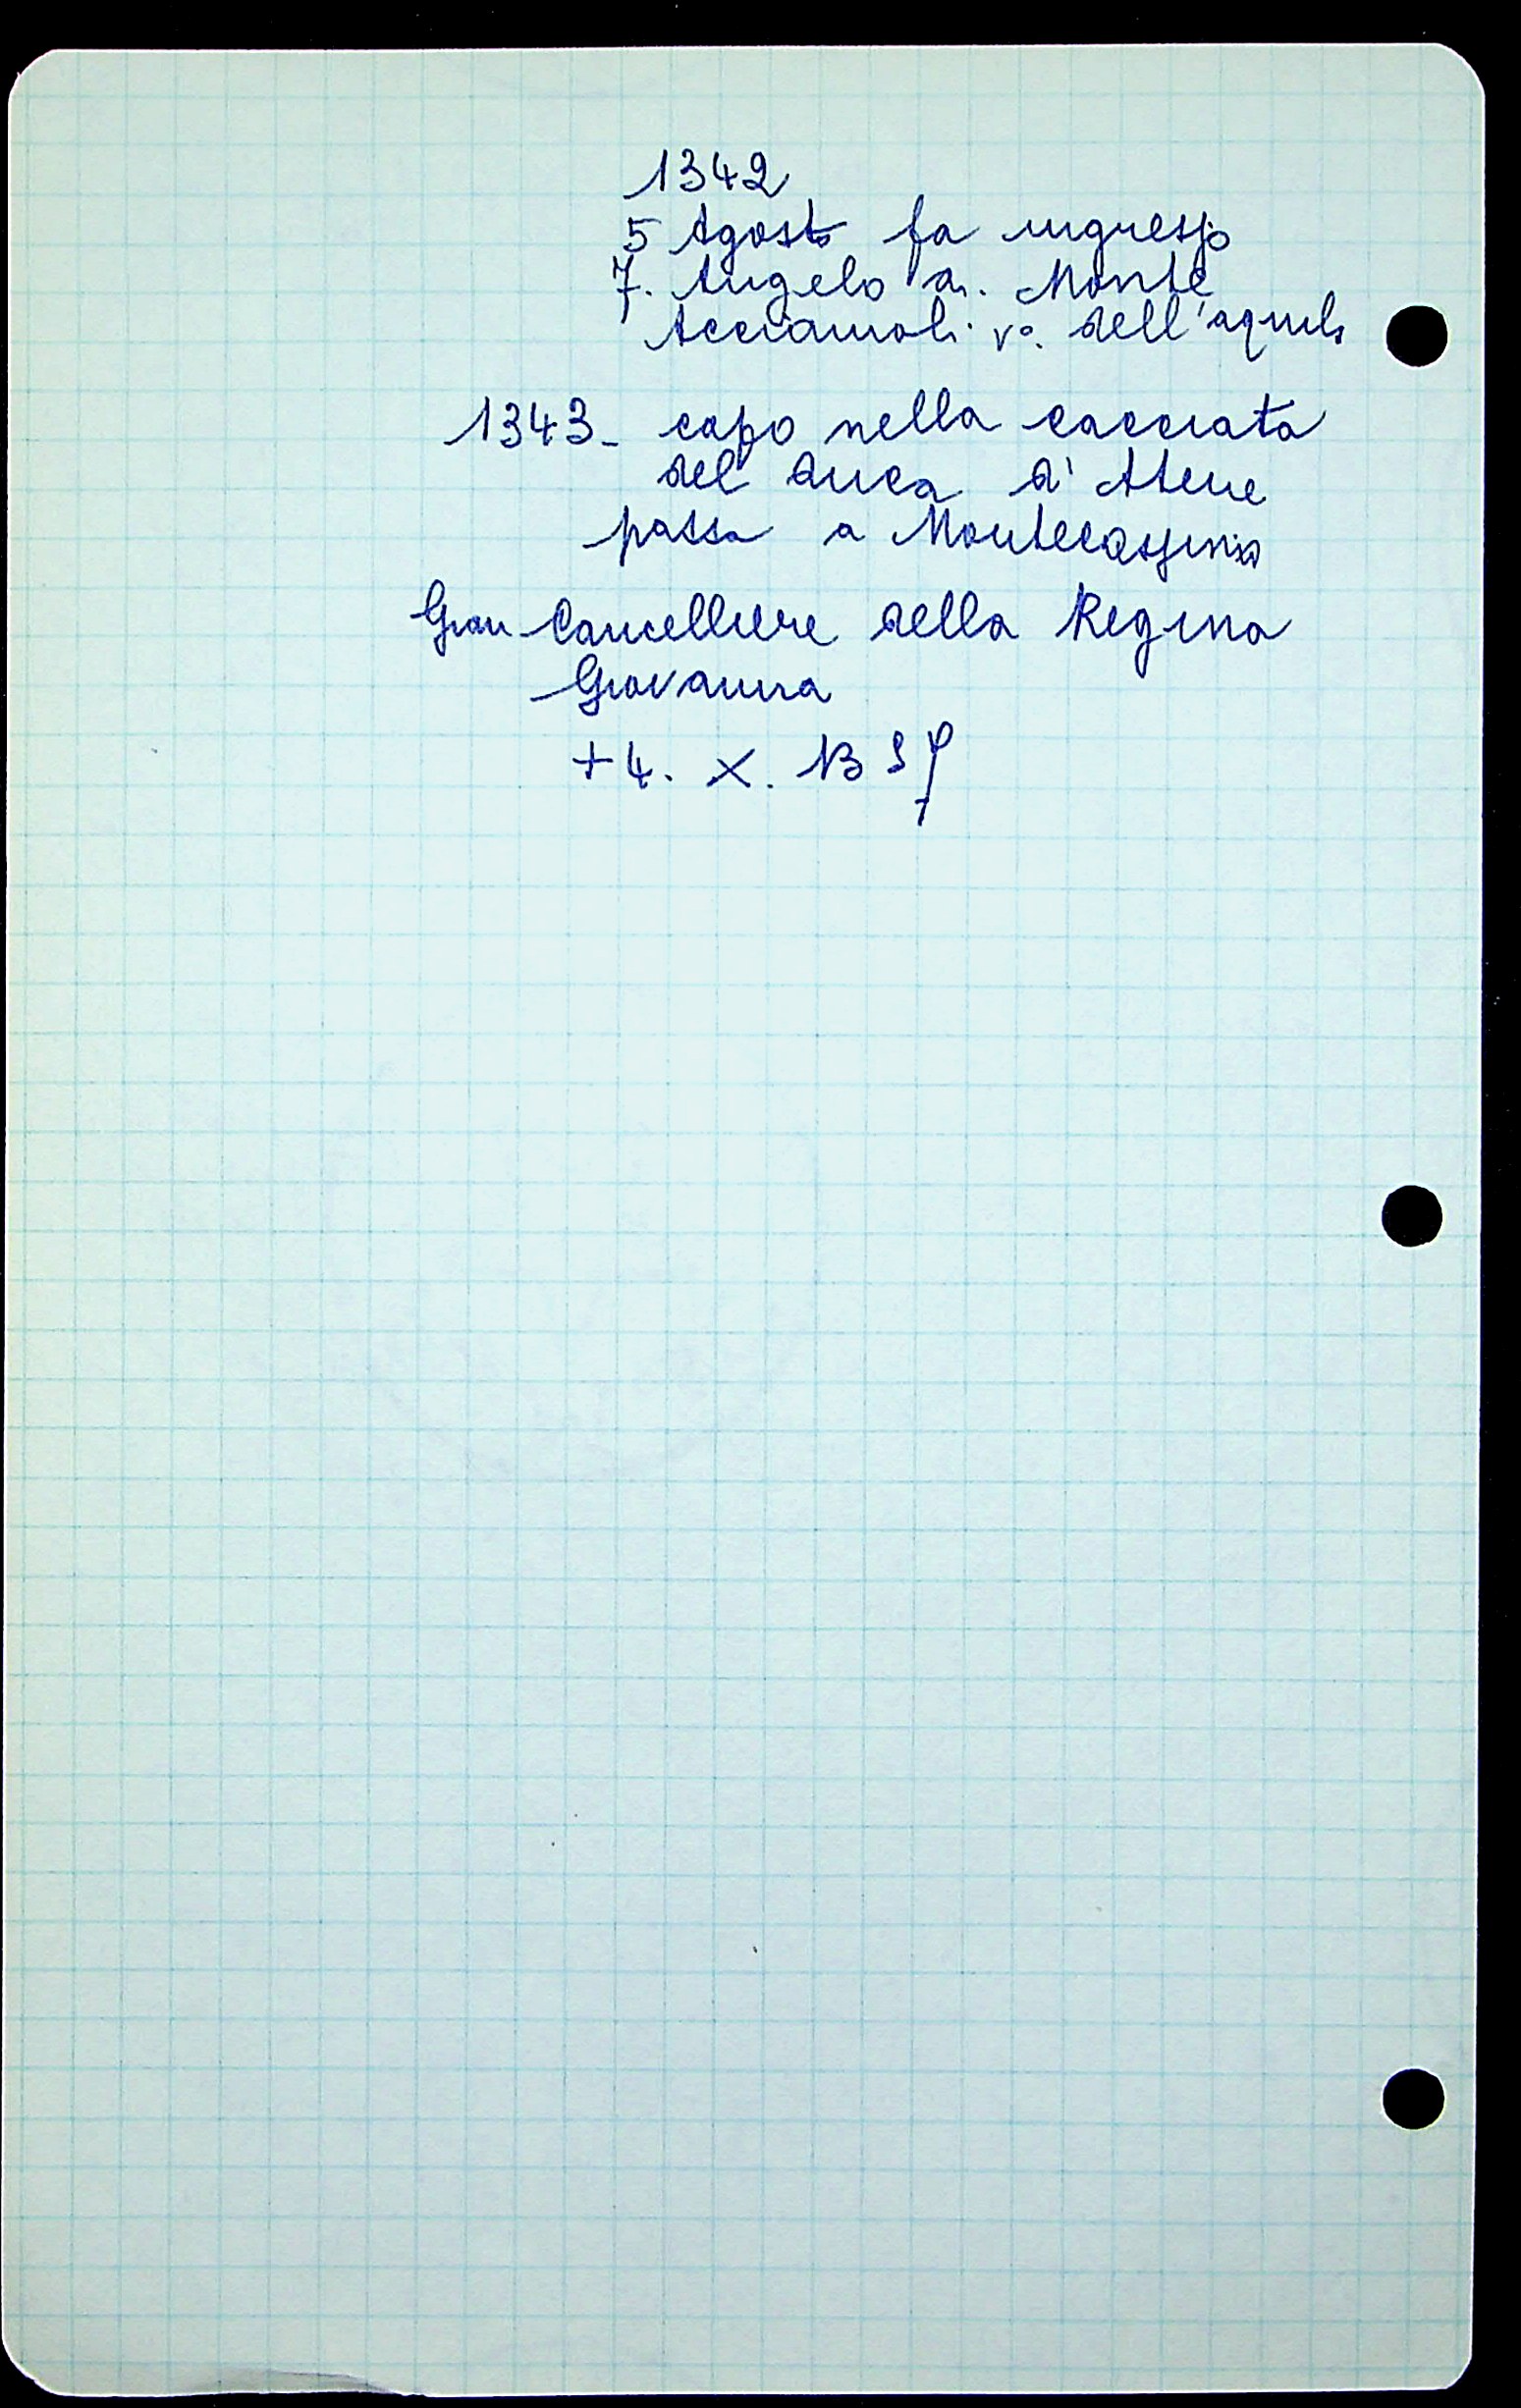 1342
5 Agosto fa ingresso
7. Angelo a. Monte
Acciaiuoli. vo. dell'aquila
1343- capo nella cacciata
del duca d'Atene
passa a Montecassino
Gran Cancelliere della Regina
Giovanna
+ 4. X. 13